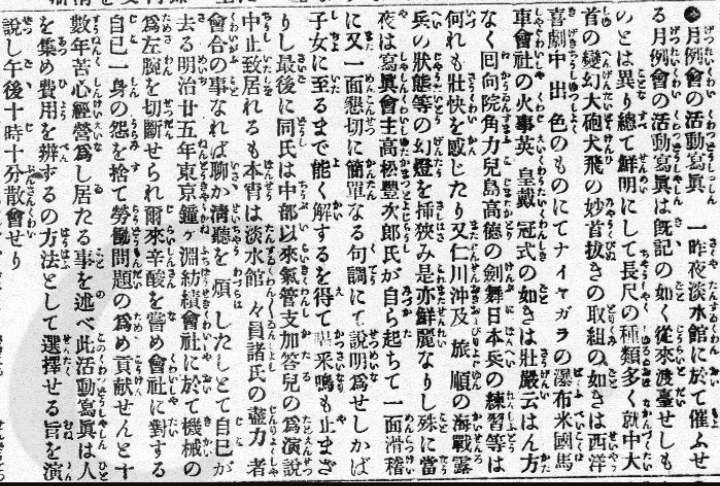 月例會の活動寫眞　一昨夜淡水館に於て催ふせ
る月例會の活動寫眞は既記の如く從來渡臺せしも
のとは異り總て鮮明にして長尺の種類多く就中大
首の變幻大砲犬飛の妙首拔きの取組の如きは西洋
喜劇中出色のものにてナイヤガラの瀑布米國馬
車會社の火事英皇戴冠式の如きは壯嚴云はん方
なく回向院角力兒島高德の劍舞日本兵の練習等は
何れも壯快を感じたり又仁川沖及旅順の海戰露
兵の狀態等の幻燈を挿狹み是亦鮮麗なりし殊に當
夜は寫眞會主高松豐次郎氏が自ら起ちて一面滑稽
に又一面懇切に簡單なる句調にて說明爲せしかば
子女に至るまで能く解するを得て喝釆鳴も止まざ
りし最後に同氏は中部以來氣管支加答兒の爲演說
中止致し居れるも本宵は淡水館々員諸氏の盡力者
會合の事なれば聊か淸聽を煩したしとて自己が
去る明治廿五年東京鐘ヶ淵紡績會社に於て機械の
爲左腕を切斷せられ爾來辛酸を嘗め會社に對する
自己一身の怨を捨て勞働問題の爲め貢献せんとす
數年苦心經營爲し居たる事を述べ此活動寫眞は人
を集め費用を辨ずるの方法として選擇せる旨を演
說し午後十時十分散會せり